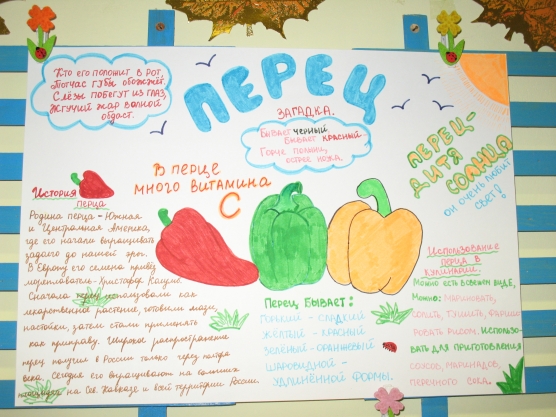 Кто его положит в рот,
Тотчас губы обожжёт.
Слёзы побегут из глаз,
Жгучий жар волной
обдаст.
ПЕРЕЦ
ЗАГАДКА.
Бывает черный,
Бывает красный.
Горче полыни,
острее ножа.
ПЕРЕЦ-
ДИТЯ
СОЛНЦА
ОН ОЧЕНЬ ЛЮБИТ
СВЕТ!
В перце
много витамина
С
История
перца
Родина перца - Южная
и Центральная Америка,
где его начали выращивать
задолго до нашей эры.
В Европу его семена привёз
мореплаватель-Христофор Колумб.
Сначала перец использовали как
лекарственное растение, готовили мази,
настойки, затем стали применять
как приправу. Широкое распространение
перец получил в России только через полтора
века. Сегодня его выращивают на больших
на Сев. Кавказе и всей территории России.
Перец бывает:
ГОРЬКИЙ - СЛАДКИЙ
ЖЁЛТЫЙ - КРАСНЫЙ
ЗЕЛЁНЫЙ-ОРАНЖЕВЫЙ
ШАРОВИДНОЙ -
УДЛИНЁННОЙ ФОРМЫ.
Использование
перца в
кулинарии.
Можно есть в свежем виде,
Можно: мариновать,
солить, тушить, фарши-
ровать рисом. Использо-
вать для приготовления
соусов, маринадов,
перечного сока.